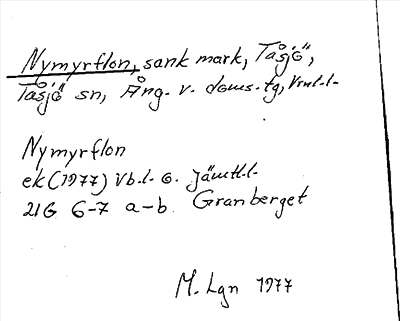 Nymyrflon, sank mark, Tåsjö",
Tåsjö sn, Ång. v. doms.tg, Vnl.l.
Nymyrflon
ek (1977) Vb.l. o. Jämtl.l.
21G 6-7 a-b. Granberget
M. Lgn 1977